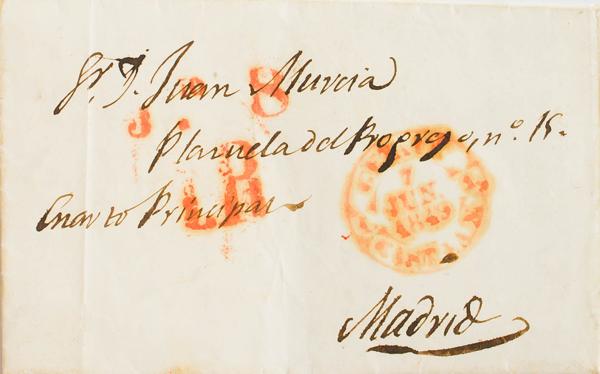 Sr. D. Juan Murcia
8
Plazuela del Progreso, nº. 15.
R
Cuarto Principal
7
JUN
Madrid